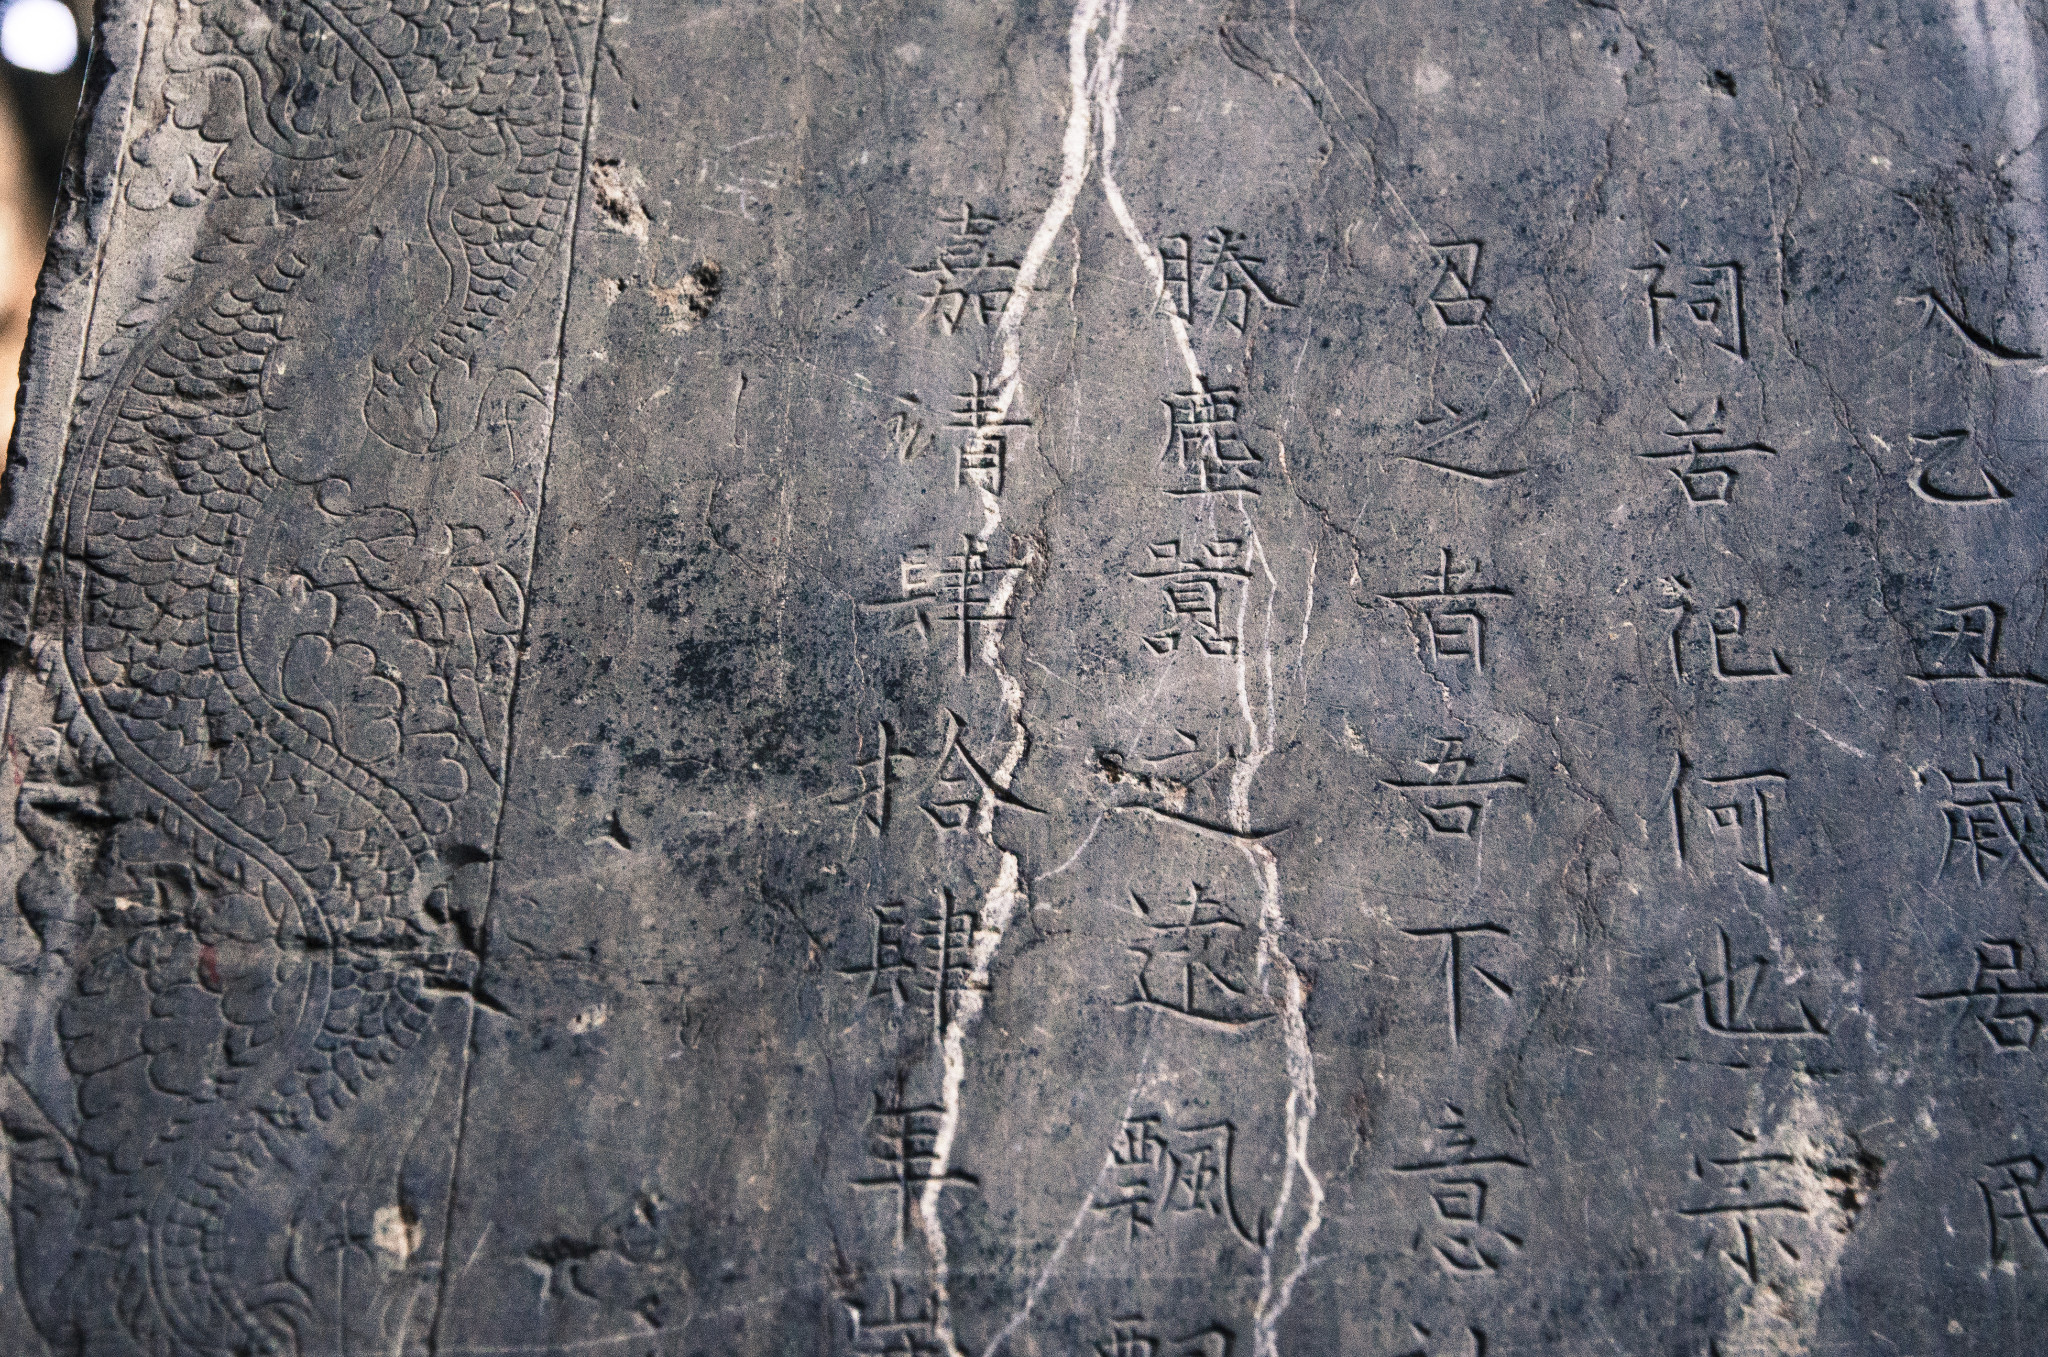 入乙丑歲
祠若祀何也宗
召之者吾下意
勝塵囂之遠飄
嘉靖肆拾肆年歲